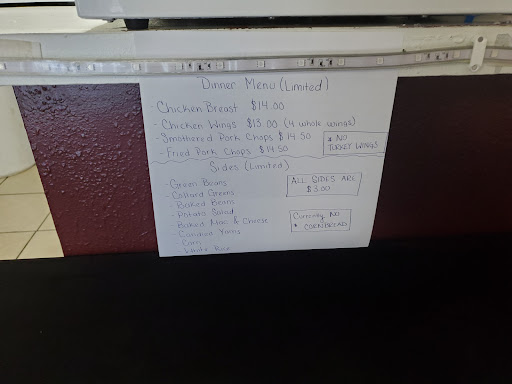 Dinner Menu (Limited)
- Chicken Breast $14.00
- Chicken Wings $13.00 (4 whole wings)
- Smothered Pork Chops $14.50
- Fried Pork Chops $14.50
* NO
TURKEY WINGS
Sides (Limited)
- Green Beans
- Collard Greens
- Baked Beans
- Potato Salad
- Baked Mac & Cheese
- Candied Yams
- Corn
- White Rice
ALL SIDES ARE
$3.00
Currently NO
* CORNBREAD